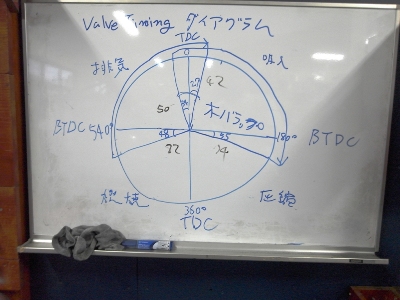 Valve Timing ダイアグラム
TDC
0
排気
吸入
42
50
木ノバラッ90
BTDC 540°
48
45
180° BTDC
22
34
燃焼
圧縮
360°
TDC